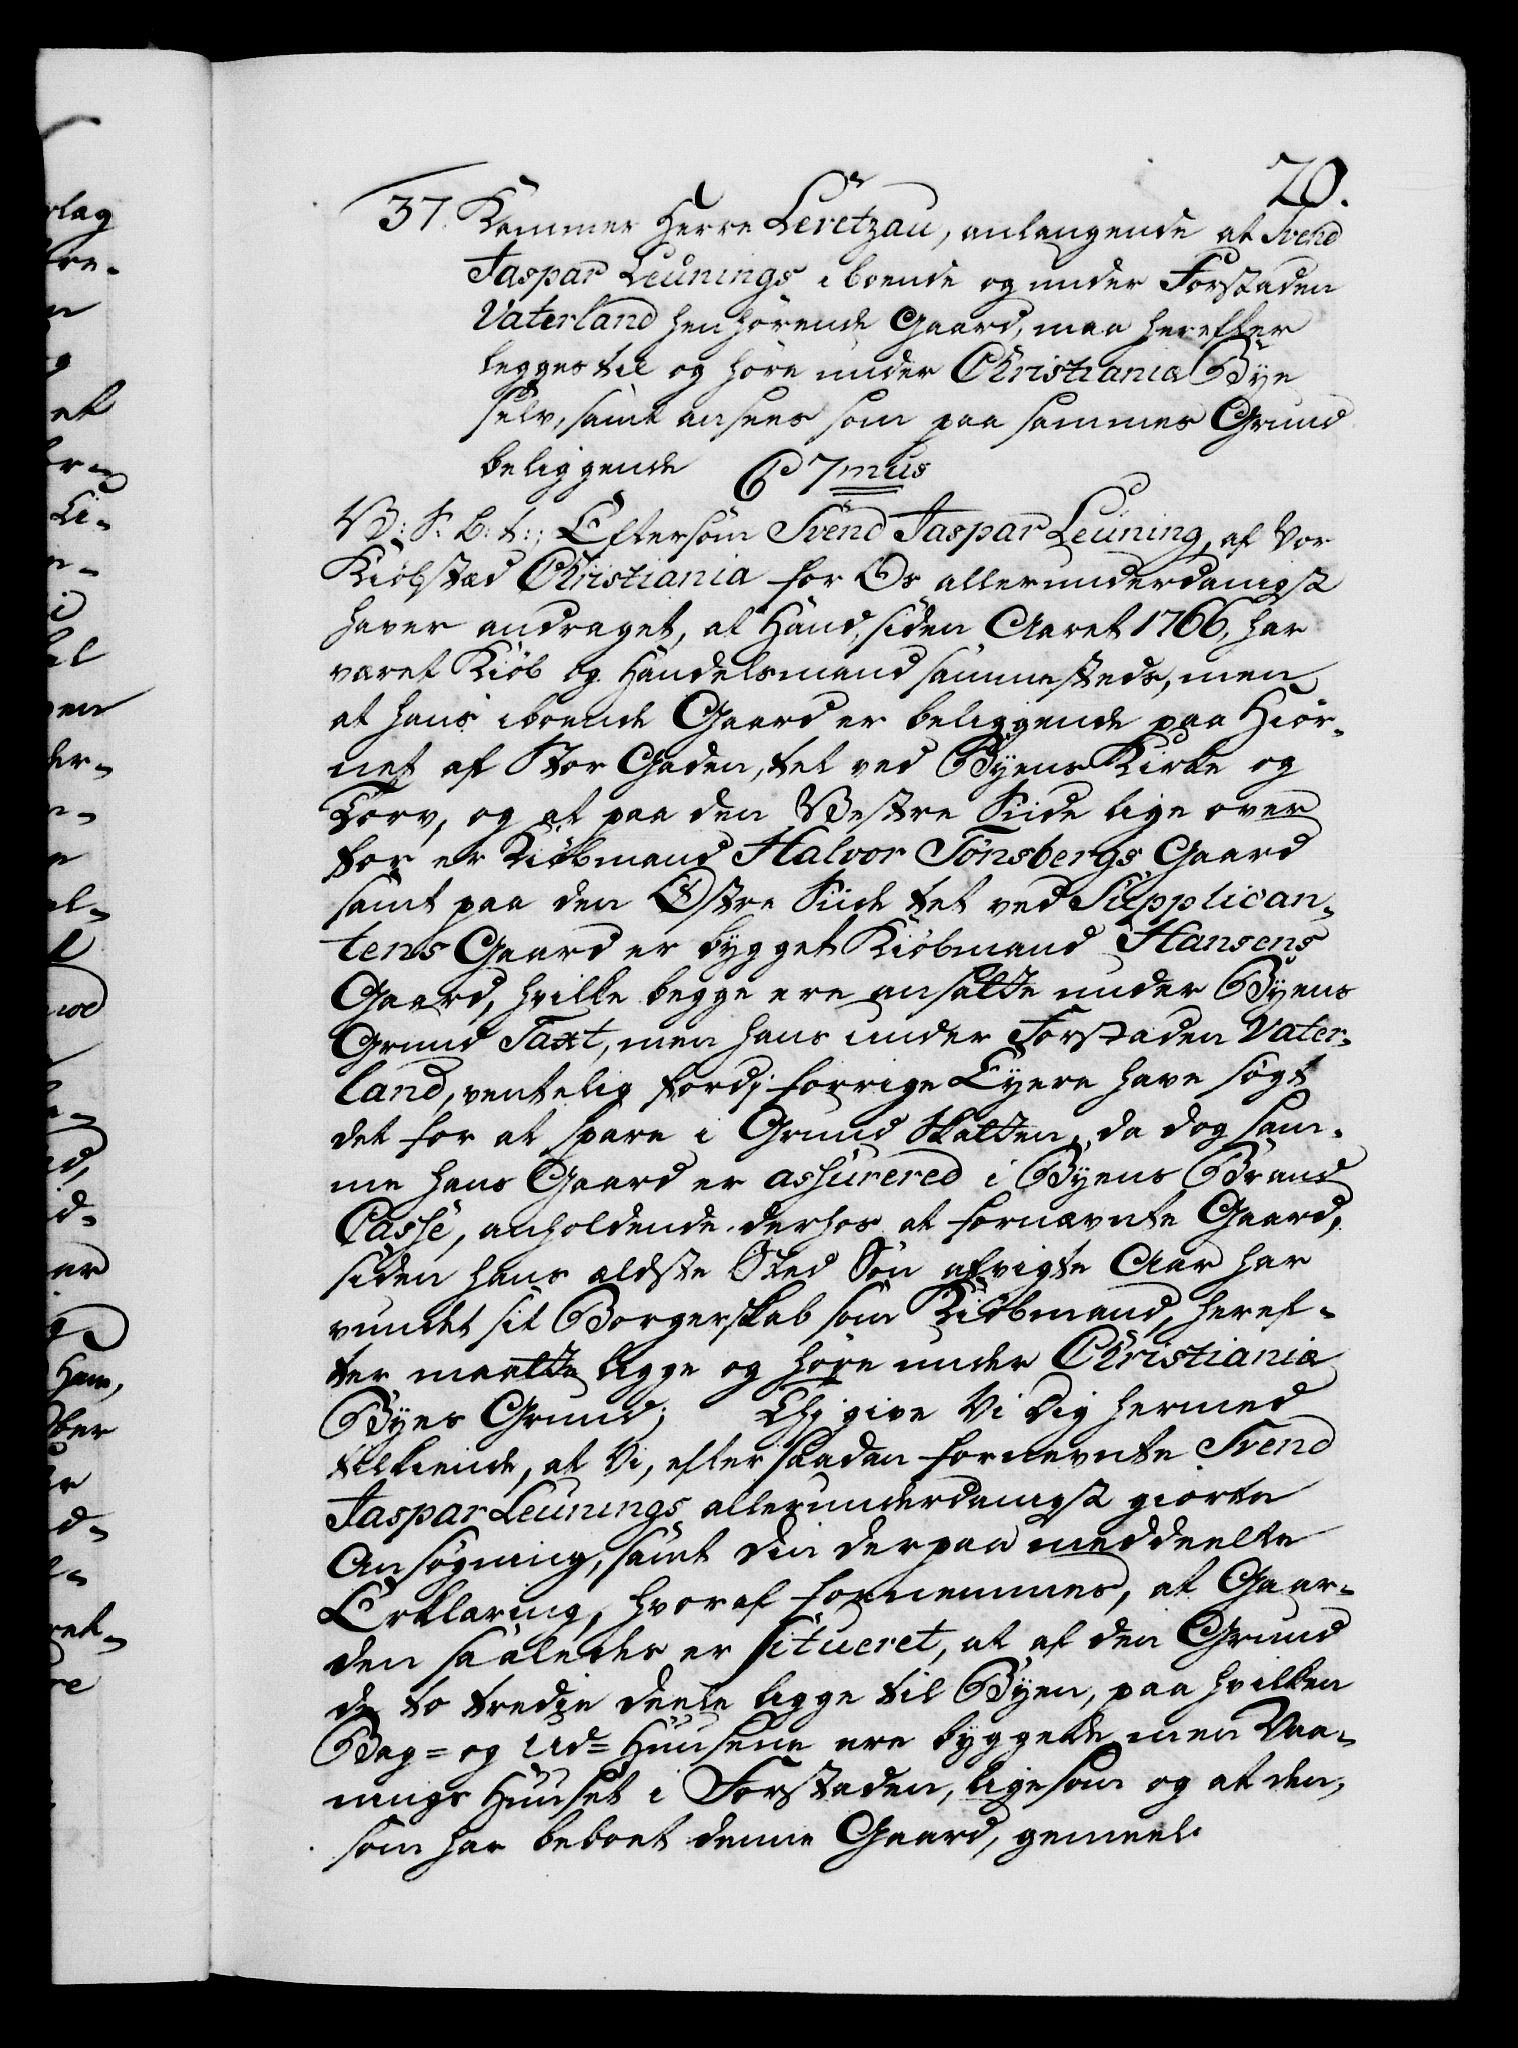 20.
37. Kammer Herre Leretzau, anlangende at Svend
Jaspar Leunings iboende og under Forstaden
Vaterland henhørende Gaard, maa herefter
legges til og høre under Christiania Bye
selv, samt ansees som paa sammes Grund
beliggende C 7mus
V: S. B: t:; Eftersom Svend Jaspar Leuning, af Vor
Kiøbstæd Christiania for Os allerunderdanigst
haver andraget, at Hand, siden Aaret 1766, har
været Kiøb og Handelsmand sammesteds, men
at hans iboende Gaard er beliggende paa Hiør-
net af Stor Gaden, tet ved Byens Kirke og
Torv, og at paa den Vestre Siide lige over
for er Kiøbmand Halvor Tönsbergs Gaard
samt paa den Østre Siide tet ved Supplican-
tens Gaard er bygget Kiøbmand Hansens
Gaard, hvilke begge ere ansatte under Byens
Grund Taxt, men hans under Forstaden Vater-
land, ventelig fordi forrige Eyere have søgt
det for at spare i Grund Skatten, da dog sam-
me hans Gaard er assurered i Byens Brand
Casse, anholdende derhos at fornævnte Gaard,
siden hans ældste Sted Søn afvigte Aar har
vundet sit Borgerskab som Kiøbmand, heref-
ter maatte ligge og høre under Christiania
Byes Grund; Thj give Vi Dig hermed
tilkiende, at Vi, efter saadan fornevnte Svend
Jaspar Leunings allerunderdanigst giorte
Ansøgning, samt Din derpaa meddeelte
Erklæring, hvoraf fornemmes, at Gaar-
den saaledes er situeret, at af den Grund
de to tredie deele ligge til Byen, paa hvilken
Bag= og Ud= Huusene ere byggede men Vaa-
nings Huuset i Forstaden, ligesom og at den,
som har beboet denne Gaard, gemeel.